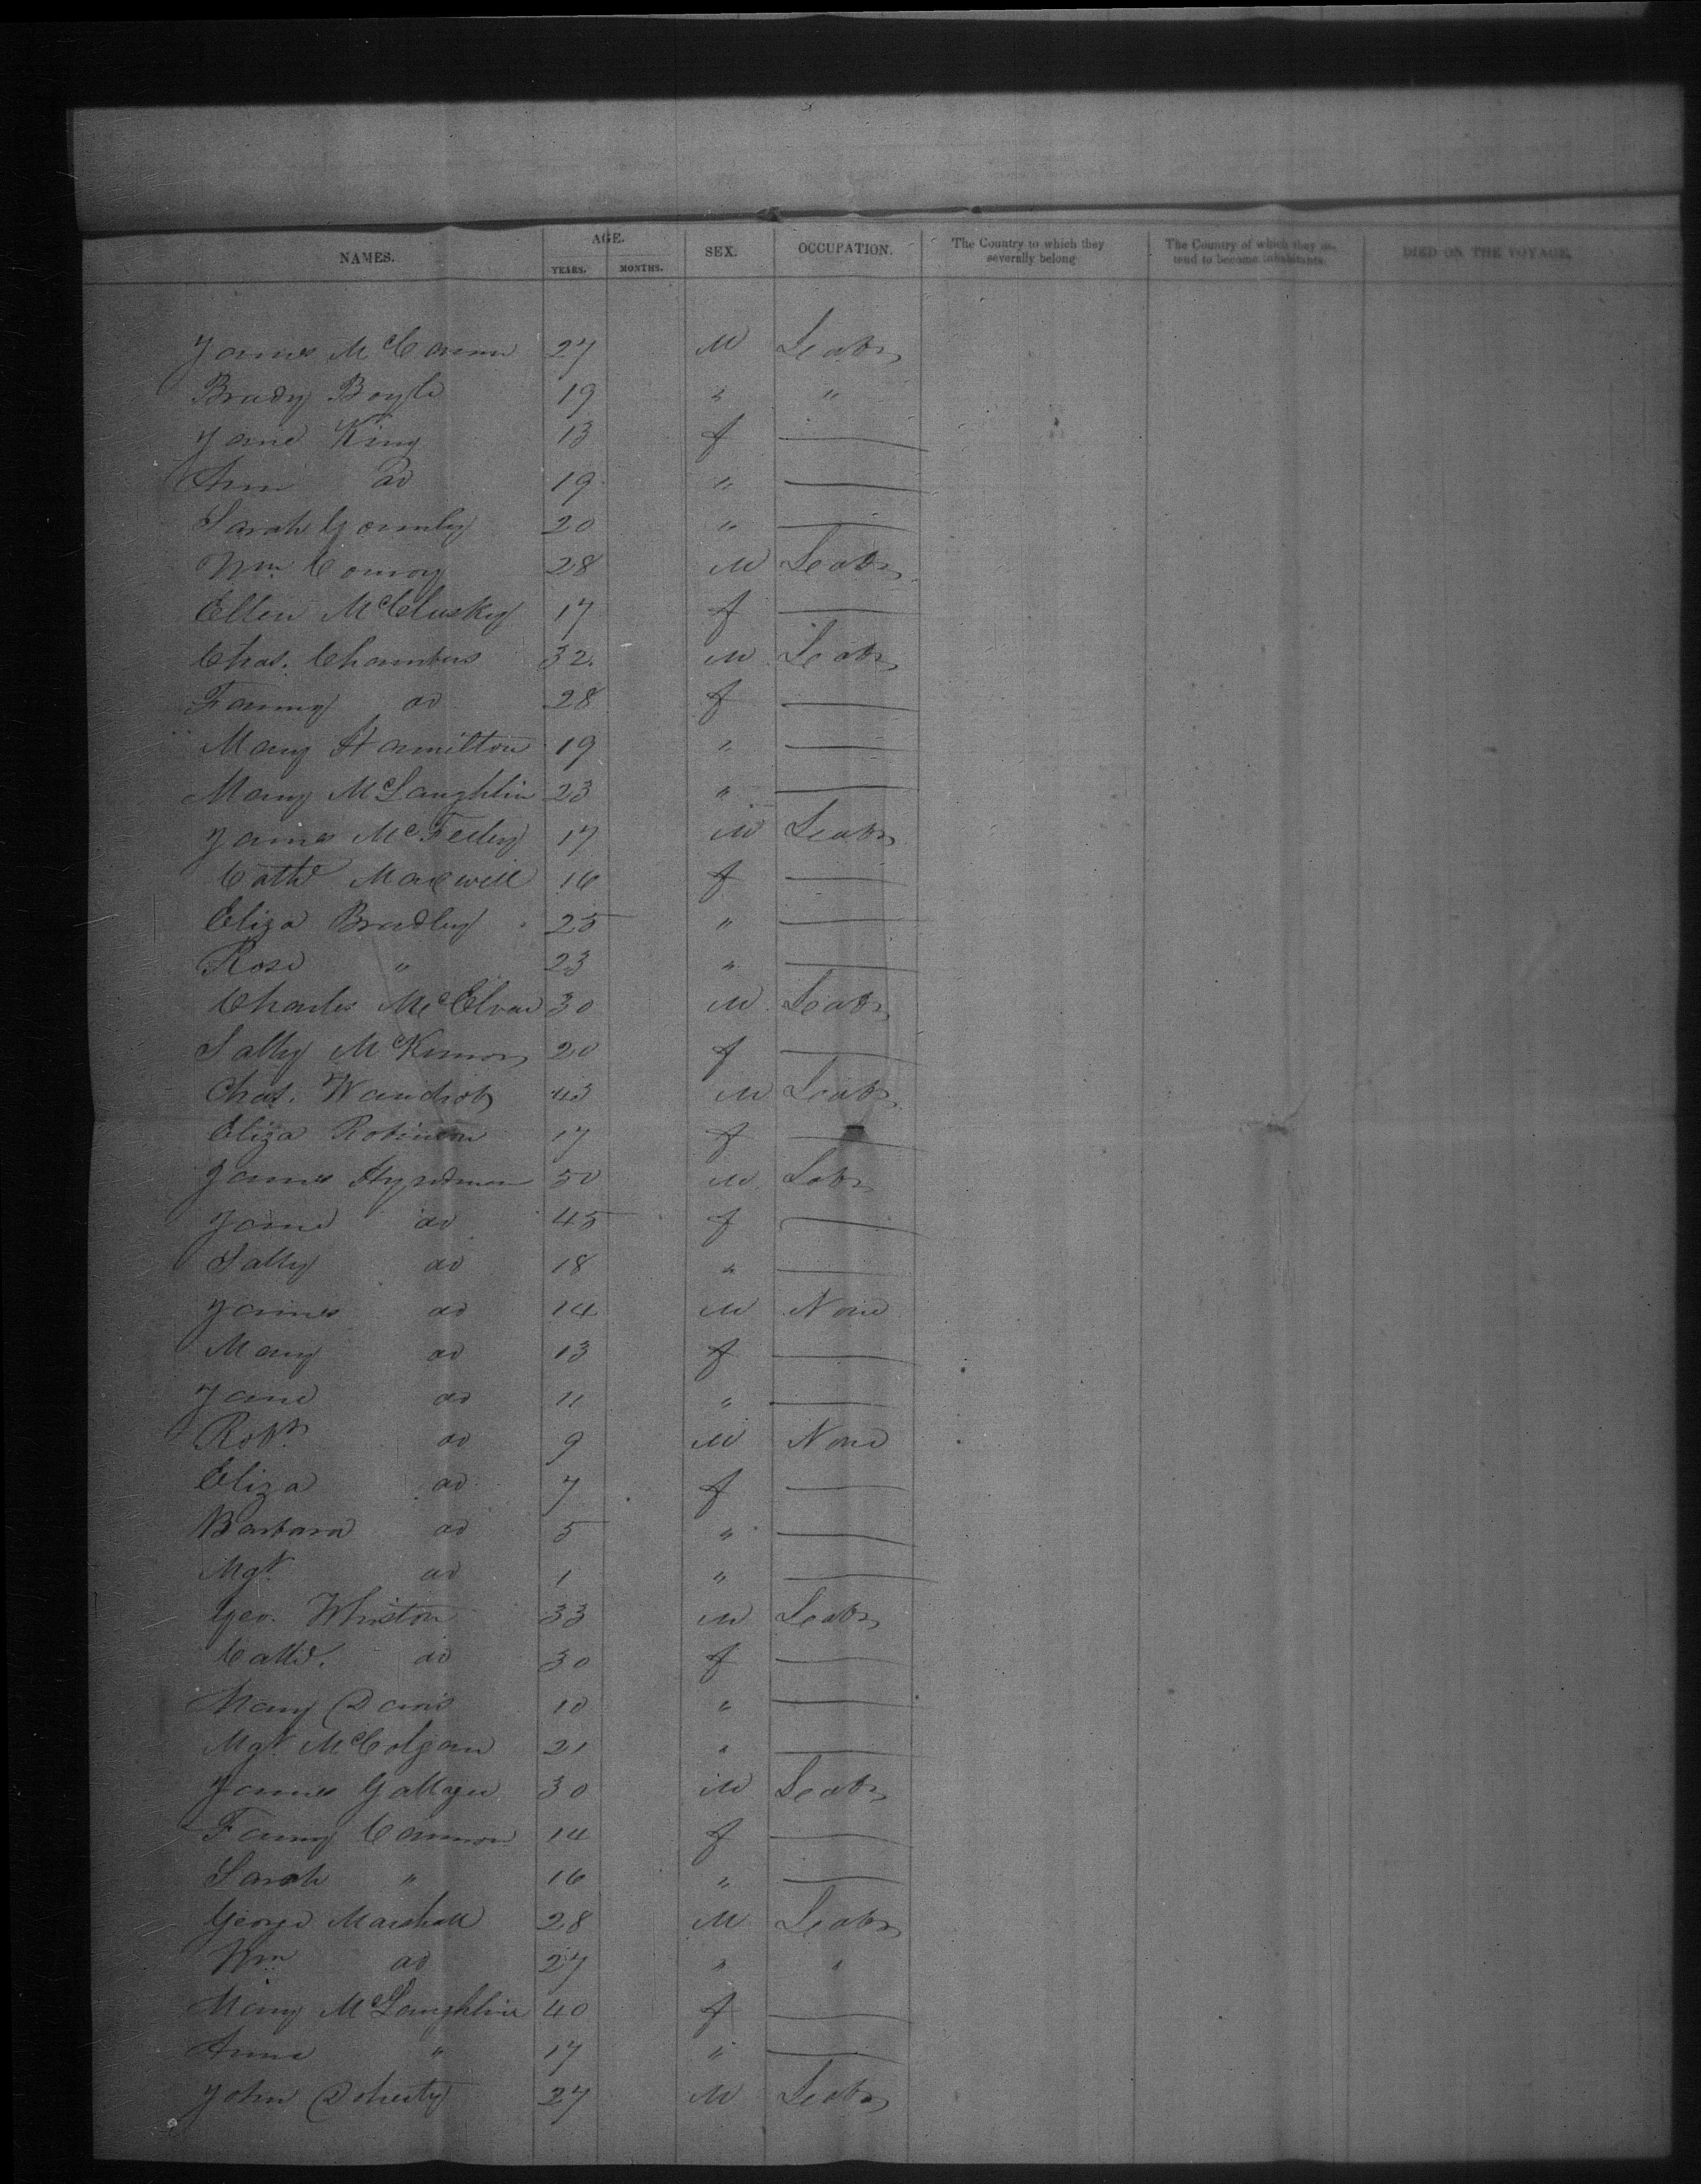 NAMES. AGE. YEARS. MONTHS. SEX. OCCUPATION. The Country to which they severally belong The Country of which they intend to become inhabitants. DIED ON THE VOYAGE.
James McCannon 27 M Leabr
Brady Boyle 19 " "
Jane King 13 f —
Ann do 19 " —
Sarah Gormley 20 " —
Wm. Conroy 28 M Leabr
Ellen McCluskey 17 f —
Chas. Chambers 32 M Leabr
Fanny do 28 f —
Mary Hamilton 19 " —
Mary McLaughlin 23 " —
James McFeeley 17 M Leabr
Cathe Maxwell 16 f —
Eliza Bradley 25 " —
Rose " 23 " —
Charles McElvar 30 M Leabr
Sally McKinnon 20 f —
Chas. 43 M Leabr
Eliza Robinson 17 f —
James Hyndman 50 M Labr
Jane do 45 f —
Sally do 18 " —
James do 14 M None
Mary do 13 f —
Jane do 11 " —
Robt. do 9 M None
Eliza do 7 f —
Barbara do 5 " —
Mgt. do 1 " —
Geo. Whiston 33 M Leabr
Cathe. do 30 f —
Mary Davis 10 " —
Mgt. McColgan 21 " —
James Gallager 30 M Leabr
Fanny Cannon 14 f —
Sarah " 16 " —
George Marshall 28 M Leabr
Wm do 27 " "
Mary McLaughlin 40 f —
Anne " 17 " —
John Doherty 27 M Leabr